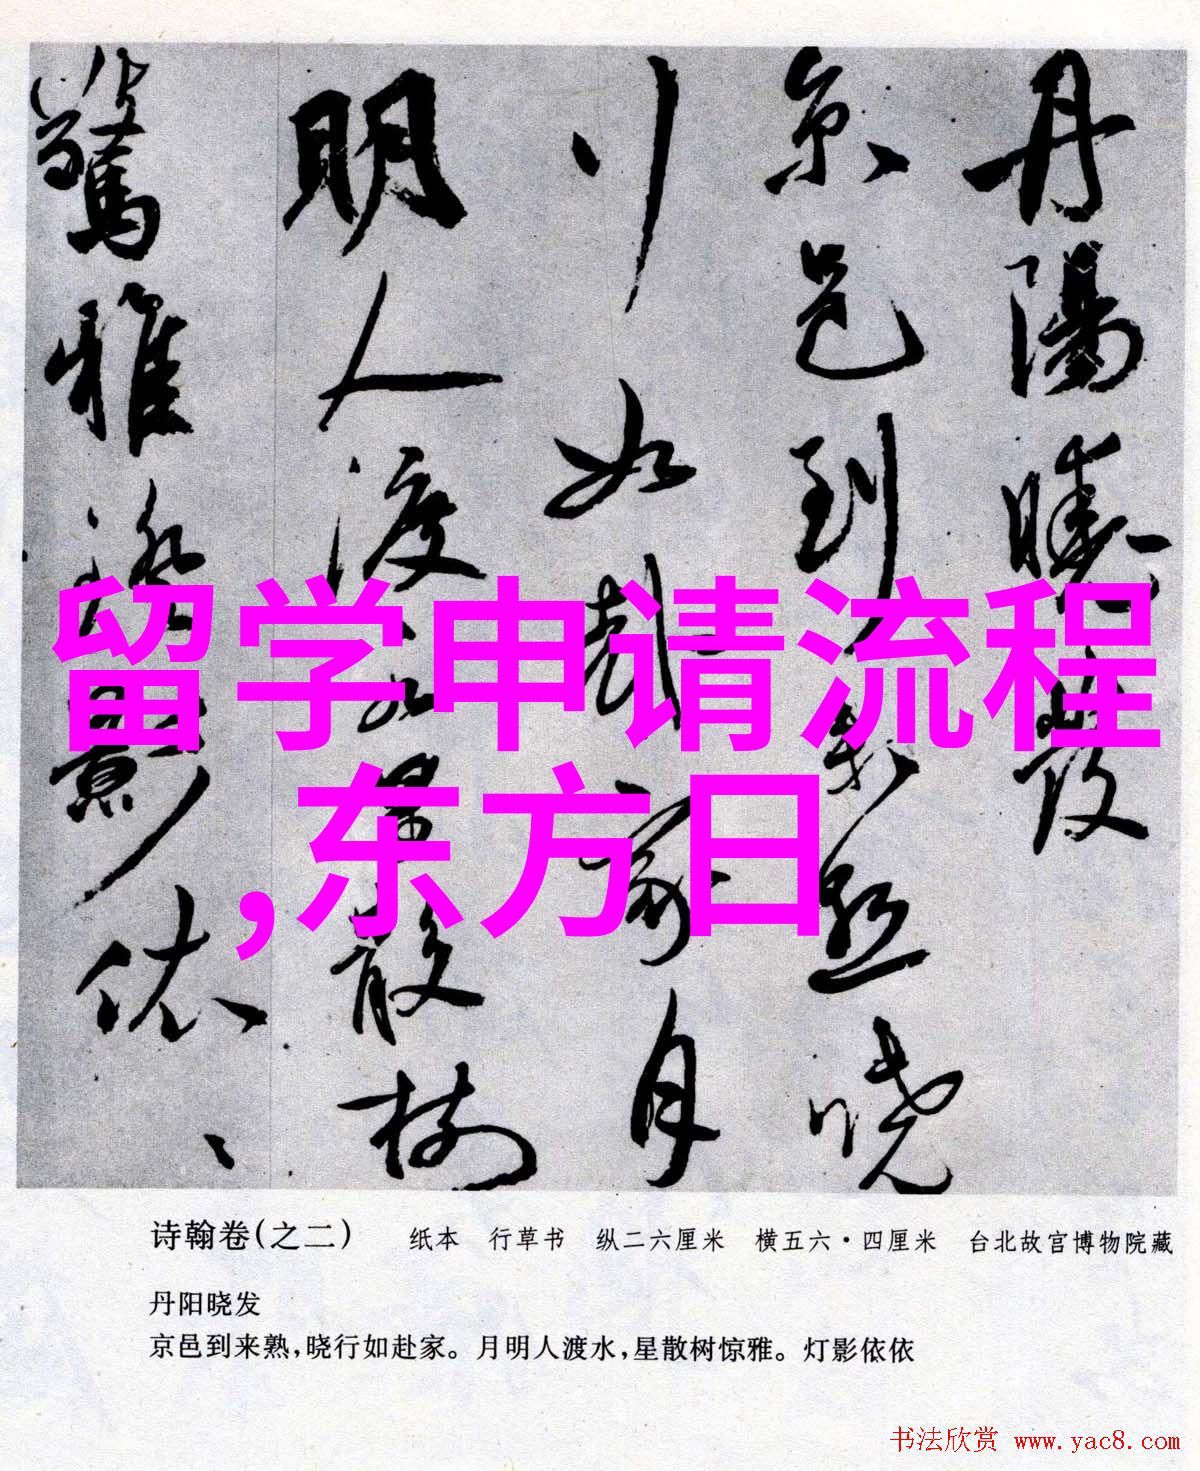 丹陽曉發
京邑到來熟曉
行如赴家月
明人渡水星散樹
驚雅燈影依、
留学申请流程
,东方日
诗翰卷(之二) 纸本 行草书 纵二六厘米 横五六·四厘米 台北故宫博物院藏
丹阳晓发
京邑到来熟,晓行如赴家。月明人渡水,星散树惊雅。灯影依依
书法欣赏 www.yac8.com